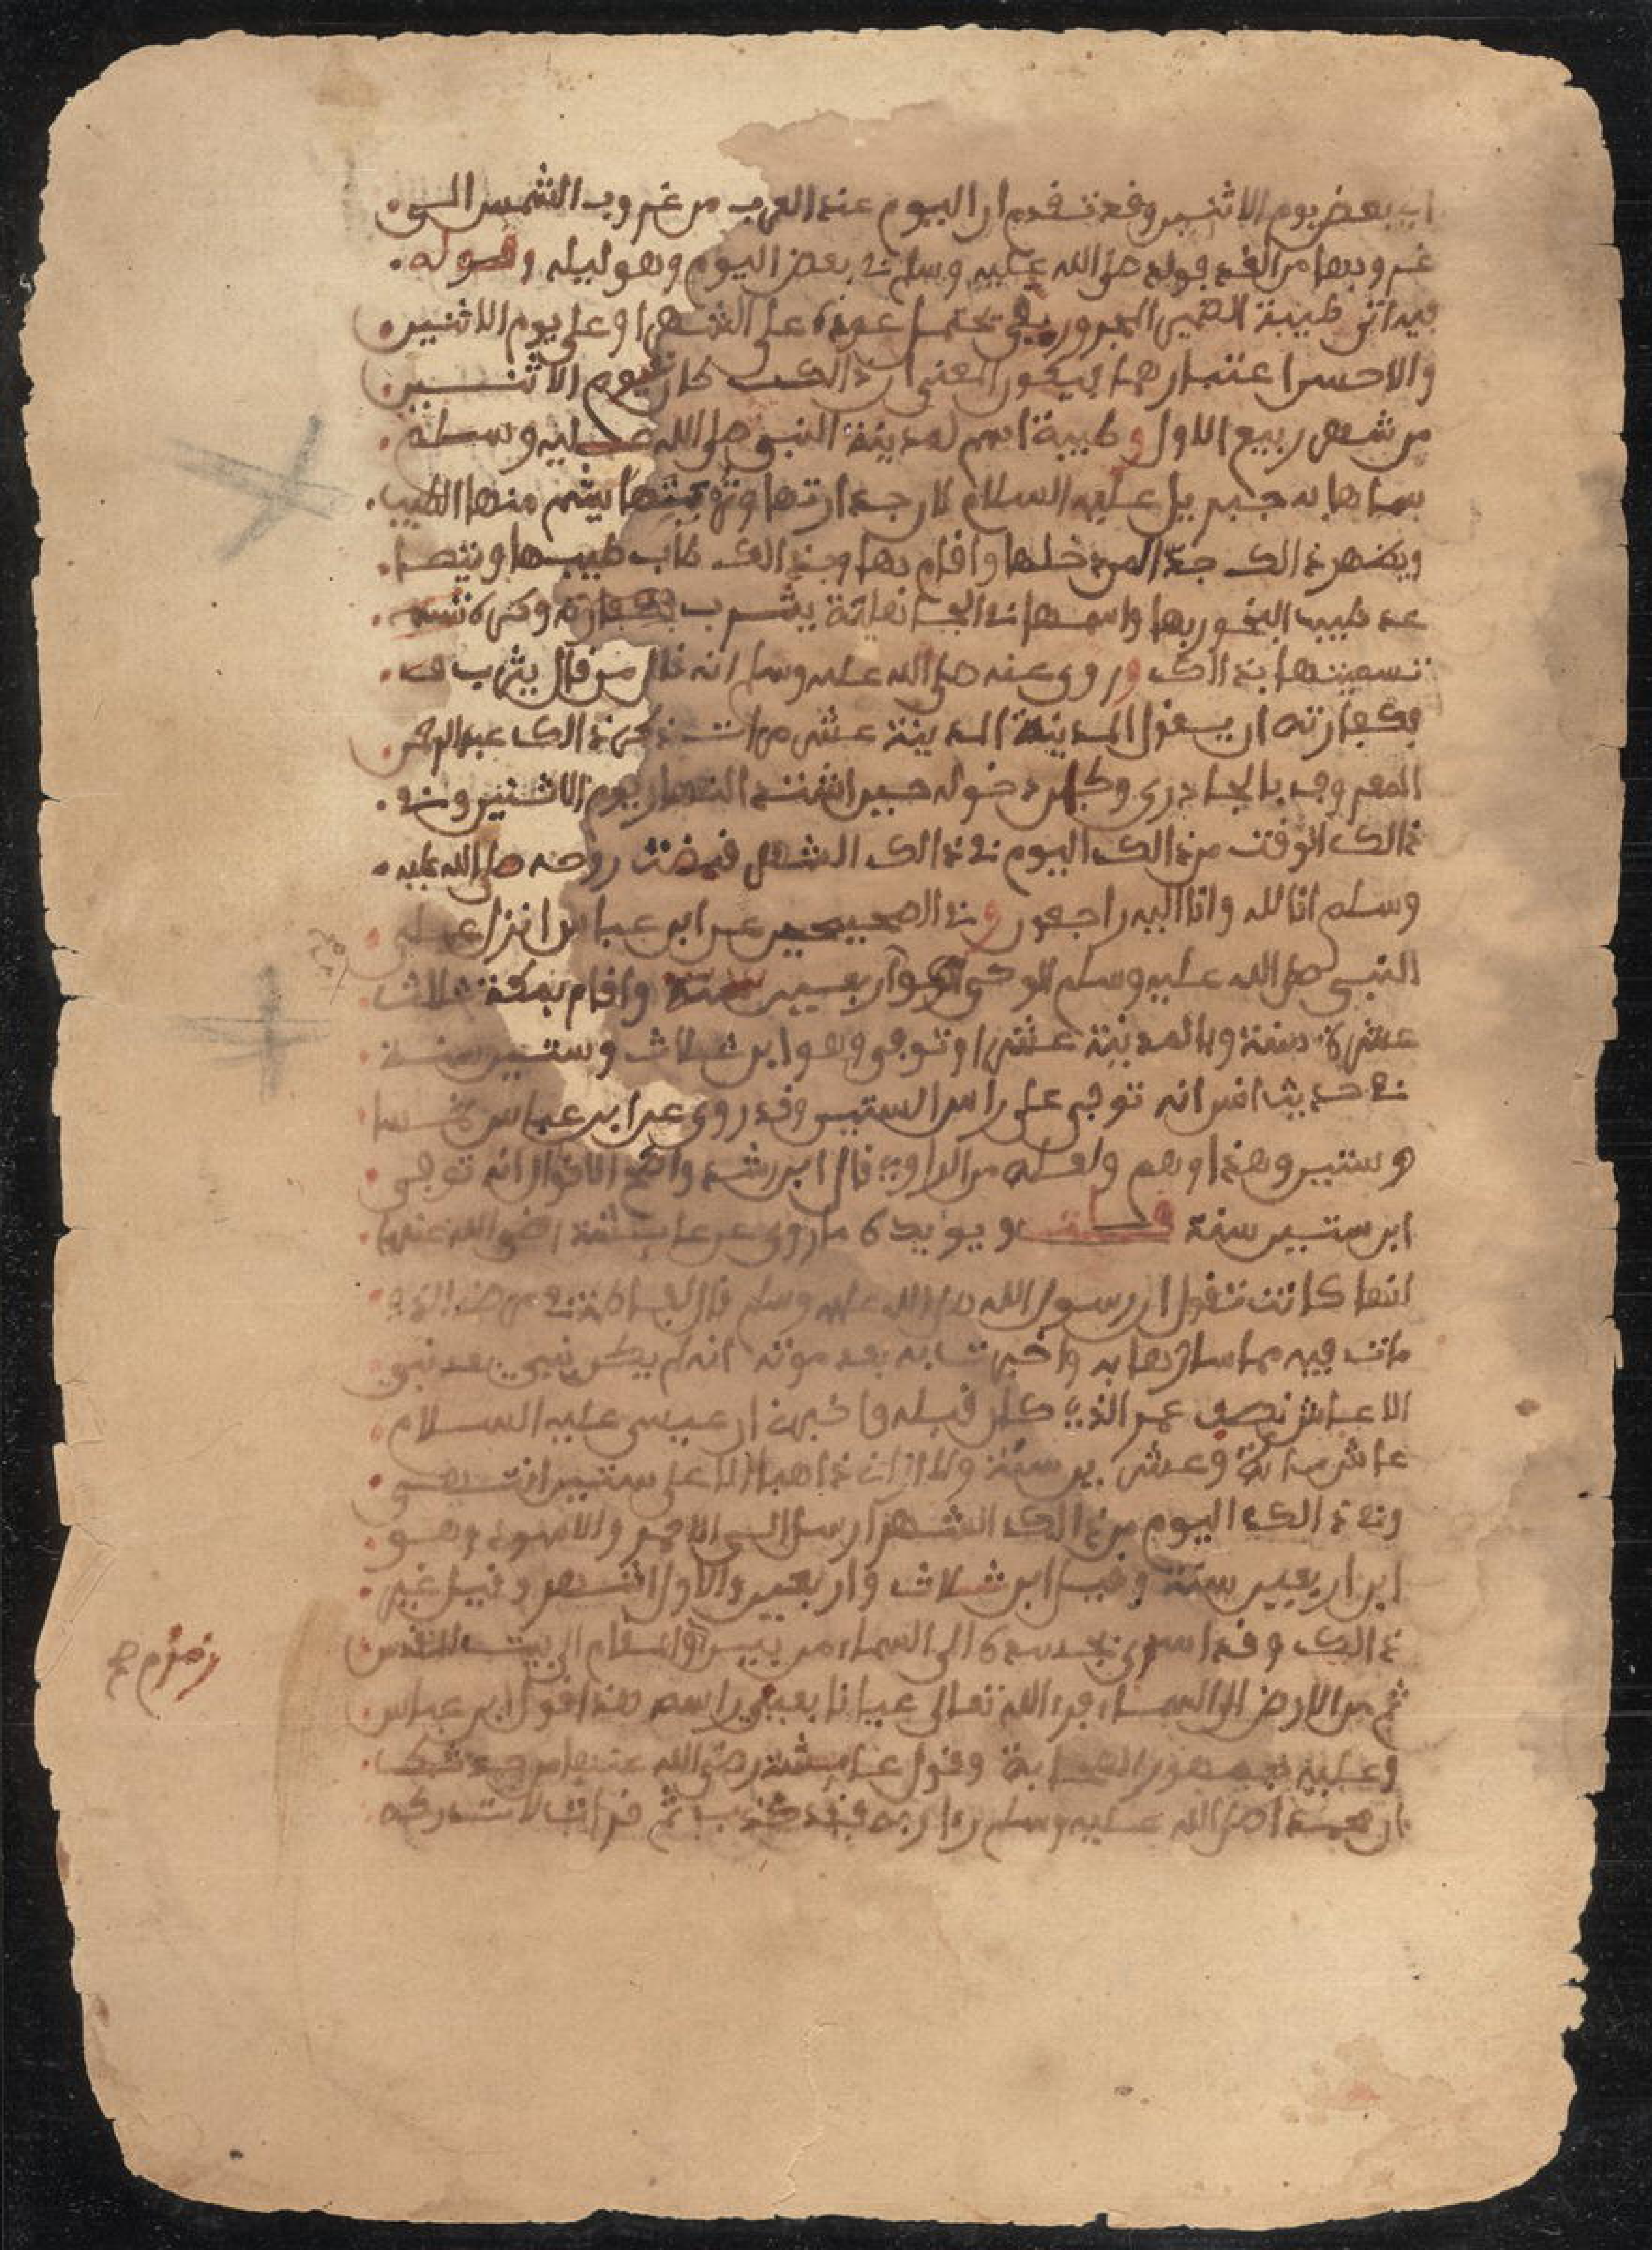 اي بعض يوم الاثنين وقد تقدم ان اليوم عند العرب من غروب الشمس الى
غروبها من الغد فوله صلى الله عليه وسلم في بعض اليوم وهو ليله وقوله
فيه اتى طيبة الضمير المجرور بفي يحتمل عوده على الشهر او على يوم الاثنين
والاحسن اعتبارهما فيكون المعنى ان ذالك كان يوم الاثنين
من شهر ربيع الاول وطيبة اسم لمدينة النبي صلى الله عليه وسلم
سماها به جبريل عليه السلام لان جدارتها وتربتها يشم منها الطيب
ويظهر ذالك جدا لمن دخلها واقام بها وجد الف طاب طيبها
عد طيب البخور بها واسمها في الجاهلية يثرب وكره
تسميتها بذالك وروي عنه صلى الله عليه وسلم انه قال من قال يثرب
فكفارته ان يقول المدينة المدينة عشر مرات ذكر ذالك عبد الرحمن
المعروف بالجادري وكان دخوله حين اشتد النهار يوم الاثنين وفي
ذالك الوقت من ذالك اليوم في ذالك الشهر قبضت روحه صلى الله عليه
وسلم انا لله وانا اليه راجعون وفي الصحيحين عن ابن عباس انزل على
النبي صلى الله عليه وسلم الوحي اربعين سنة واقام بمكة ثلاث
عشرة سنة وبالمدينة عشرا وتوفي وهو ابن ثلاث وستين سنة
في حديث انس انه توفي على راس الستين وقد روي عن ابن عباس خمسا
وستين وهذا وهم ولعله من الراوي قال ابن رشد واصح الاقوال انه توفي
ابن ستين سنة قلت ويؤيده ما روي عن عايشة رضي الله عنها
انها كانت تقول ان رسول الله صلى الله عليه وسلم قال لفاطمة في مرضه الذي
مات فيه مما سارها به واخبرت به بعد موته انه لم يكن نبي بعد نبي
الا عاش نصف عمر الذي كان قبله واخبرت ان عيسى عليه السلام
عاش مائة وعشرين سنة ولا اران ذاهبا الا على ستين انتهى
وفي ذالك اليوم من ذالك الشهر ارسل الى الاحمر والاسود وهو
ابن اربعين سنة وقيل ابن ثلاث واربعين والاول اشهر وقيل غير
ذالك وقد اسري بجسده الى السماء من بين المقام الى بيت المقدس
ثم من الارض الى السماء فرءا الله تعالى عيانا بعيني راسه هذا قول ابن عباس
وعليه جمهور الصحابة وقول عايشة رضي الله عنها من حدثك
ان محمدا صلى الله عليه وسلم رءا ربه فقد كذب ثم قرات لا تدركه